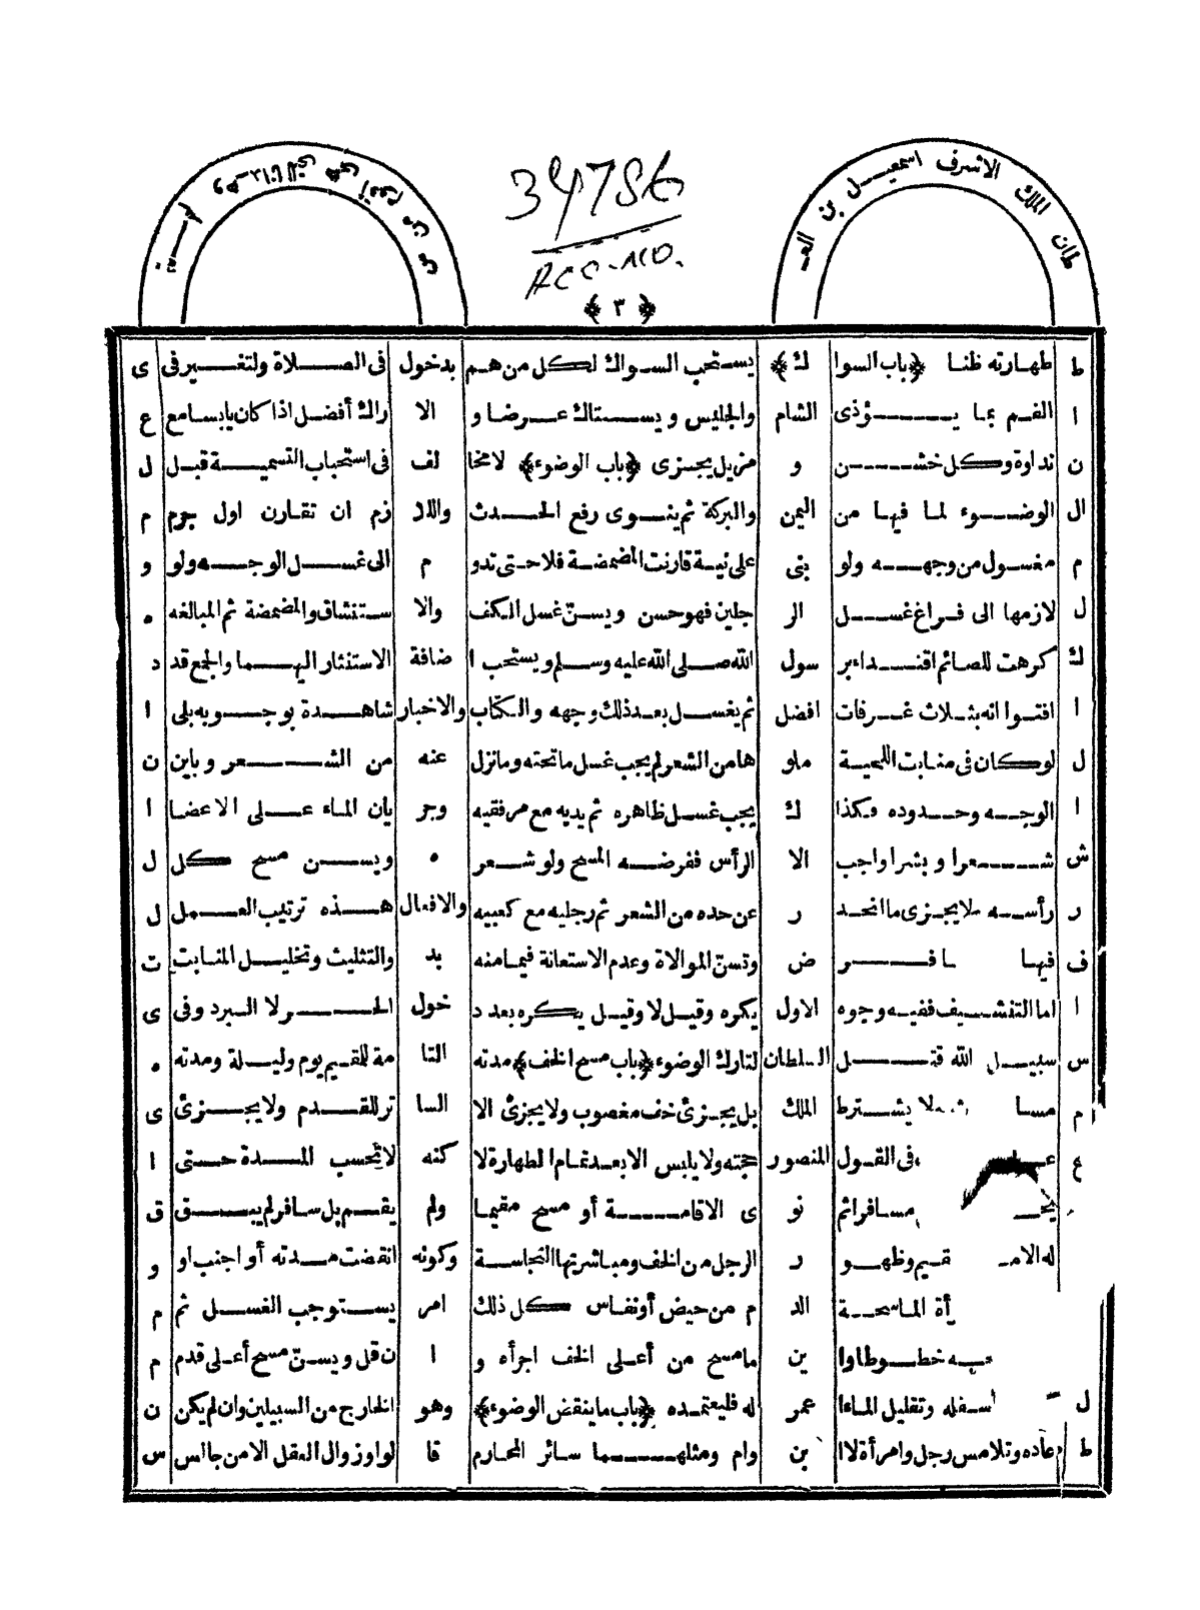 طان الملك الاشرف اسمعيل بن العـ
34786
ACC-NO.
﴿ ٣ ﴾
ط طهارته ظنا ﴿باب السوا ك﴾ يستحب السواك لكل من هم بدخول فى الصلاة ولتغير فى ى
ا الفم بما يؤذى الشام والجليس ويستاك عرضا و الا راك أفضل اذا كان يابسا مع ع
ن نداوة وكل خشن و مزيل يجزى ﴿باب الوضوء﴾ لا مخا لف فى استحباب التسمية قبل ل
ال الوضوء لما فيها من اليمن والبركة ثم ينوى رفع الحدث واللا زم ان تقارن اول جزم م
م مغسول من وجهه ولو بنى على نية قارنت المضمضة فلا حتى تدو م الى غسل الوجه ولو و
ل لازمها الى فراغ غسل الر جلين فهو حسن ويسن غسل الكف والا ستنشاق والمضمضة ثم المبالغه ه
ك كرهت للصائم اقتداء بر سول الله صلى الله عليه وسلم ويستحب ا ضافة الاستنثار اليهما والجمع قد د
ا افتوا انه بثلاث غرفات افضل ثم يغسل بعد ذلك وجهه والكتاب والاخبار شاهدة بوجوبه بلى ا
ل لو كان فى منابت اللحية ماو ها من الشعر لم يجب غسل ما تحته وما نزل عنه من الشعر وباين ن
ا الوجه وحدوده فكذا ك يجب غسل ظاهره ثم يديه مع مرفقيه وجر يان الماء على الاعضا ا
ش شعرا وبشرا واجب الا الرأس ففرضه المسح ولو شعر ه ويسن مسح كل ل
ر رأسه ولا يجزى ما انحد ر عن حده من الشعر ثم رجليه مع كعبيه والافعال هذه ترتيب العمل ل
ف فيها فر ض وتسن الموالاة وعدم الاستعانة فيما منه بد والتثليث وتخليل المنابت ت
ا اما التنشيف ففيه وجوه الاول يكره وقيل لا وقيل يكره بعد د خول الحر لا البرد وفى ى
س سبيل الله قتل السلطان لتارك الوضوء ﴿باب مسح الخف﴾ مدته التا مة للقيم يوم وليلة ومدته ه
م مسا يشترط الملك بل يجزئ خف مغصوب ولا يجزئ الا السا تر للقدم ولا يجزئ ى
ع فى القول المنصور حجته ولا يلبس الا بعد تمام الطهارة لا كنه لا تحسب المدة حتى ا
مسافر اثم نو ى الاقامة أو مسح مقيما ولم يقم بل سافر لم يبق ق
له الامـ قيم وظهو ر الرجل من الخف ومباشرتها النجاسة وكونه انقضت مدته أو اجنب او و
أة الماسحة الد م من حيض أو نفاس كل ذلك امر يستوجب الغسل ثم م
به خطوطا وا ين ما مسح من أعلى الخف اجرأه و ا ن قل ويسن مسح أعلى قدم م
ل أسفله وتقليل الماء ا عمر له فليعتمده ﴿باب ما ينقض الوضوء﴾ وهو الخارج من السبيلين وان لم يكن ن
ط عاده وتلامس رجل وامرأة لا ا بن وام ومثلهما سائر المحارم قا لوا وزوال العقل الا من جالس س